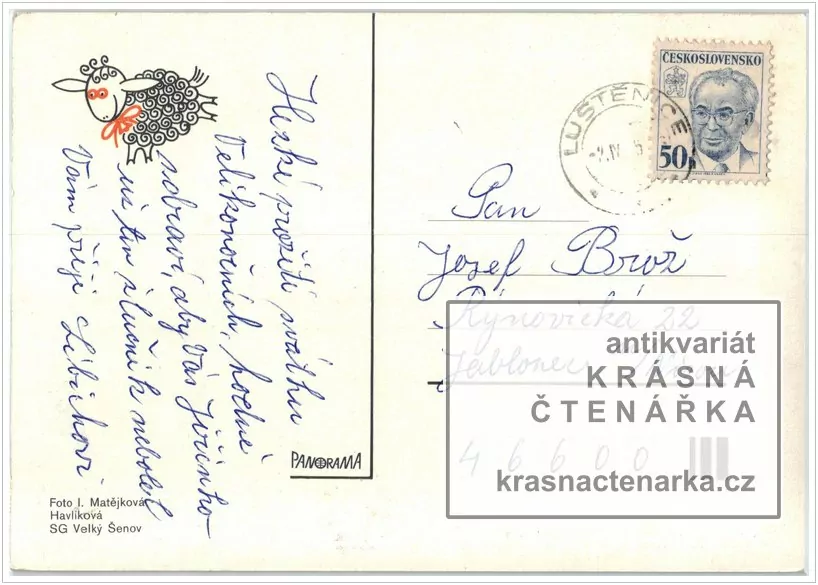 Hezké prožití svátků
Velikonočních, hodně
zdraví, aby Vás Jiřinko
už ten žlučník nebolel
Vám přeje Libichovi
PANORAMA
Foto I. Matějková
Havlíková
SG Velký Šenov
ČESKOSLOVENSKO
50h
LUŠTĚNICE
Pan
Josef Brož
Rýnovická 22
Jablonec
46600
antikvariát
KRÁSNÁ
ČTENÁŘKA
krasnactenarka.cz